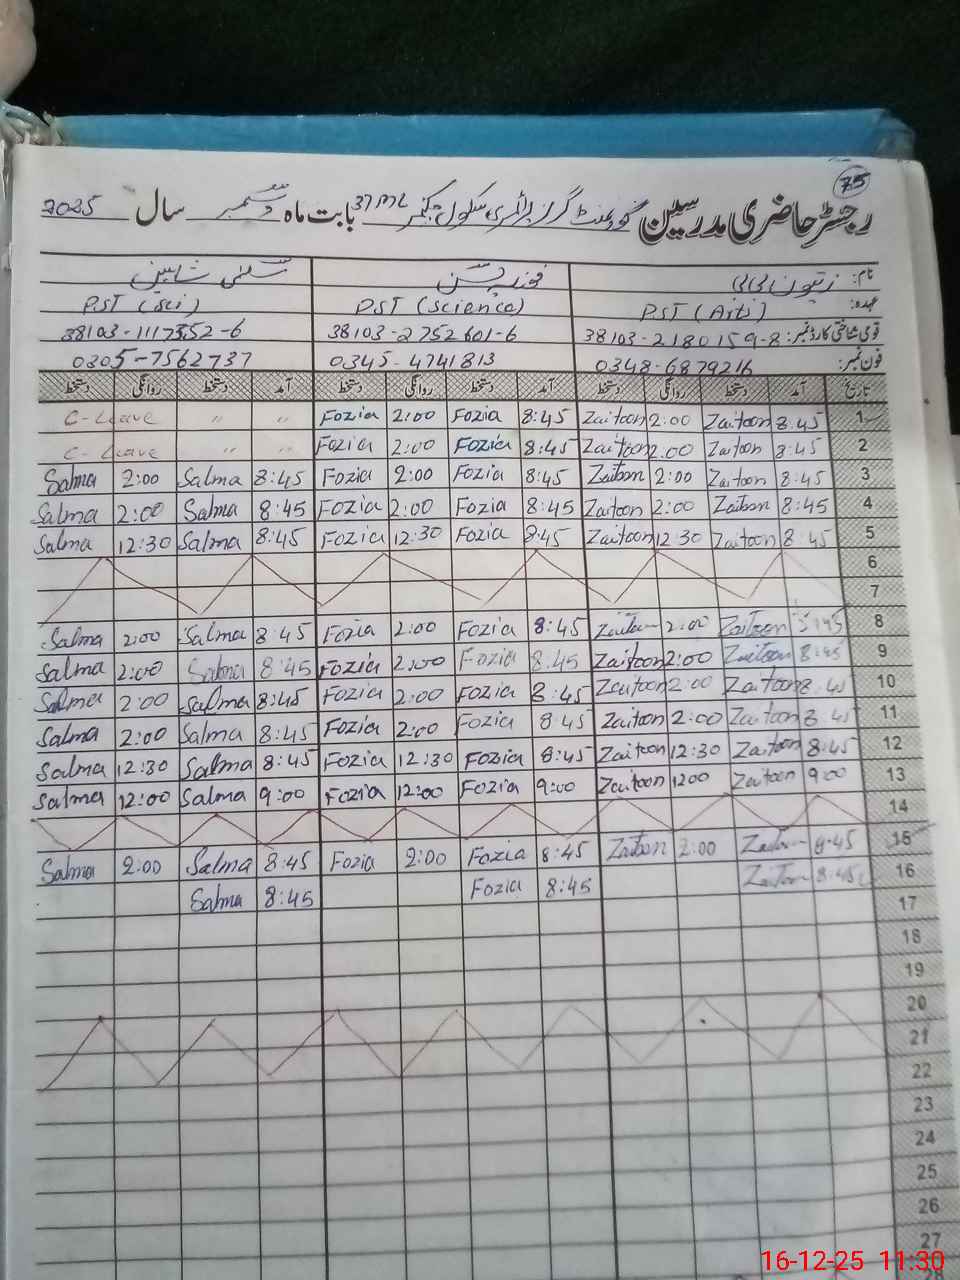 75
رجسٹر حاضری مدرسین گورنمنٹ گرلز پرائمری سکول چک نمبر 37ML بابت ماہ دسمبر سال 2025
نام: زیتون بی بی فوزیہ سلمیٰ شاہین
عہدہ: PST (Arts) PST (Science) PST (Sci)
قومی شناختی کارڈ نمبر: 38103-2180159-8 38103-2752601-6 38103-1117352-6
فون نمبر: 0348-6879216 0345-4741813 0305-7562737
تاریخ آمد دستخط روانگی دستخط آمد دستخط روانگی دستخط آمد دستخط روانگی دستخط
1 8:45 Zaitoon 2:00 Zaitoon 8:45 Fozia 2:00 Fozia " " C-Leave
2 8:45 Zaitoon 2:00 Zaitoon 8:45 Fozia 2:00 Fozia " " C-Leave
3 8:45 Zaitoon 2:00 Zaitoon 8:45 Fozia 2:00 Fozia 8:45 Salma 2:00 Salma
4 8:45 Zaitoon 2:00 Zaitoon 8:45 Fozia 2:00 Fozia 8:45 Salma 2:00 Salma
5 8:45 Zaitoon 12:30 Zaitoon 8:45 Fozia 12:30 Fozia 8:45 Salma 12:30 Salma
6
7
8 8:45 Zaitoon 2:00 Zaitoon 8:45 Fozia 2:00 Fozia 8:45 Salma 2:00 Salma
9 8:45 Zaitoon 2:00 Zaitoon 8:45 Fozia 2:00 Fozia 8:45 Salma 2:00 Salma
10 8:45 Zaitoon 2:00 Zaitoon 8:45 Fozia 2:00 Fozia 8:45 Salma 2:00 Salma
11 8:45 Zaitoon 2:00 Zaitoon 8:45 Fozia 2:00 Fozia 8:45 Salma 2:00 Salma
12 8:45 Zaitoon 12:30 Zaitoon 8:45 Fozia 12:30 Fozia 8:45 Salma 12:30 Salma
13 9:00 Zaitoon 1200 Zaitoon 9:00 Fozia 12:00 Fozia 9:00 Salma 12:00 Salma
14
15 8:45 Zaitoon 2:00 Zaitoon 8:45 Fozia 2:00 Fozia 8:45 Salma 2:00 Salma
16 8:45 Zaitoon 8:45 Fozia 8:45 Salma
17
18
19
20
21
22
23
24
25
26
27
28
16-12-25 11:30